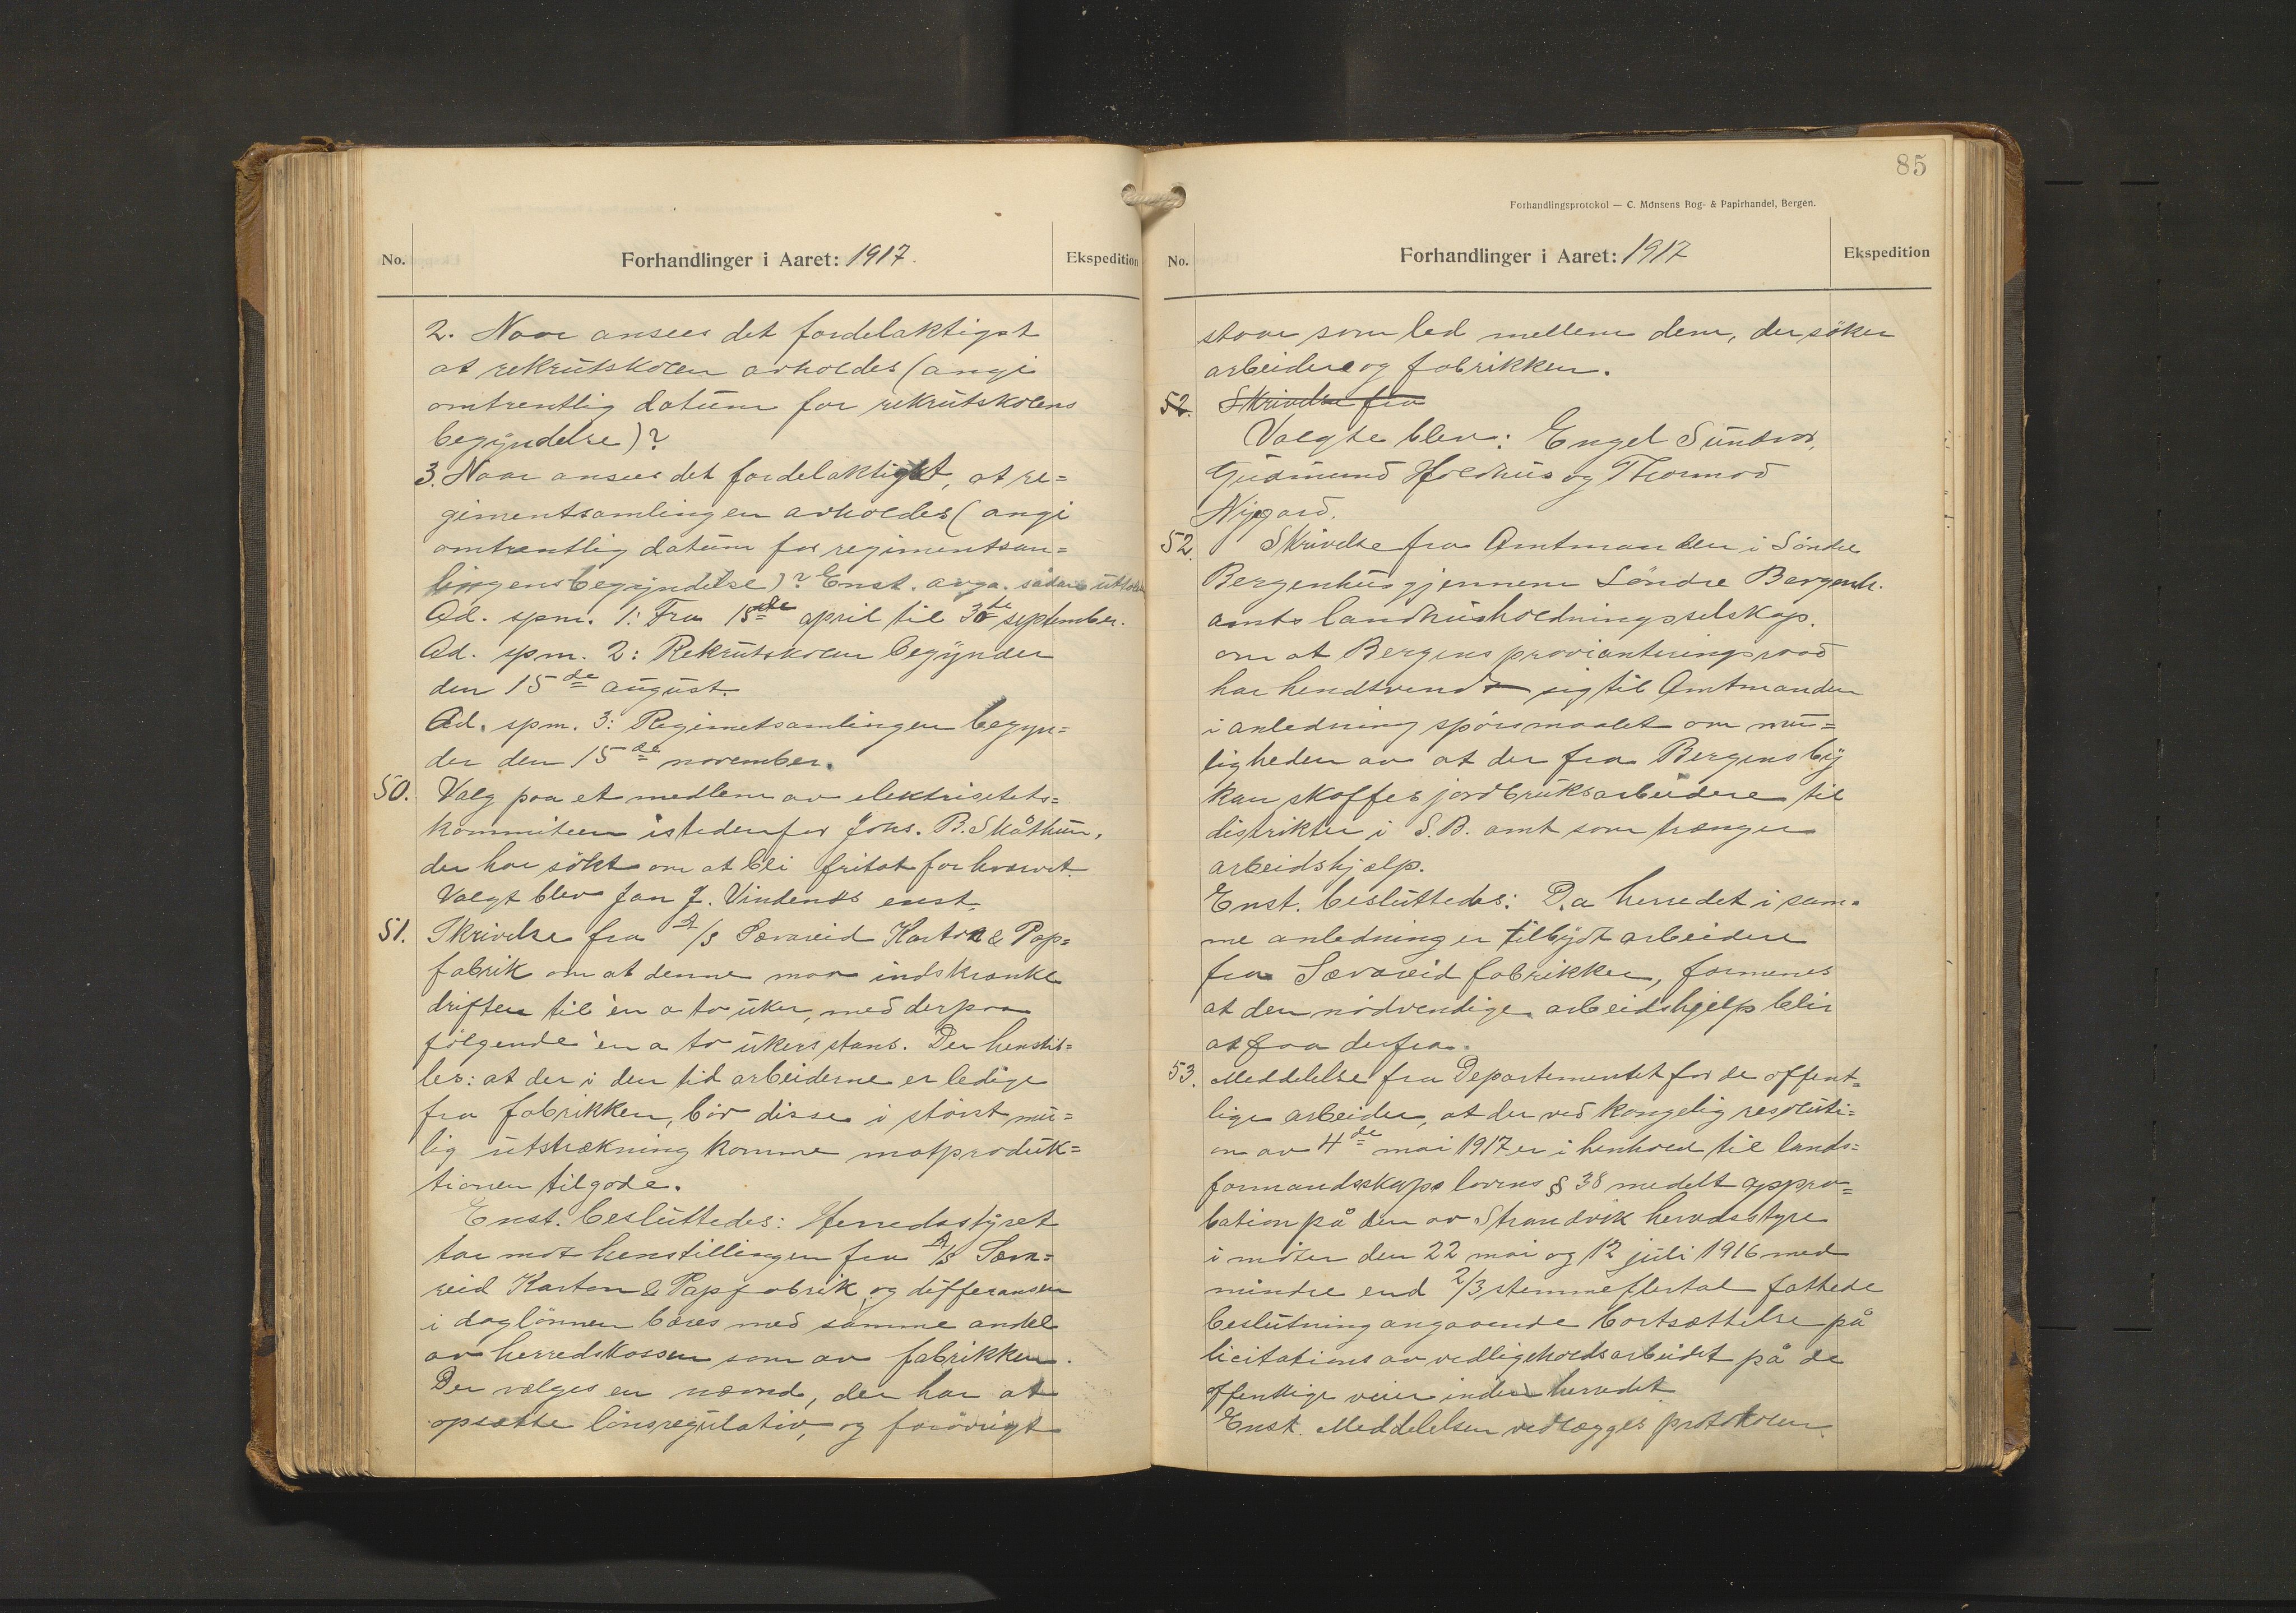 No.
Forhandlinger i Aaret: 1917.
Ekspedition
2. Naar ansees det fordelaktigst
at rekrutskolen avholdes (angi
omtrentlig datum for rekrutskolens
begyndelse)?
3. Naar ansees det fordelaktigst, at re=
gimentsamlingen avholdes (angi
omtrentlig datum for regimentsam=
lingens begyndelse)? Enst. avga. sådan
Ad. spm. 1: Fra 15de april til 30te september.
Ad. spm. 2: Rekrutskolen begynder
den 15de august.
Ad. spm. 3: Regimetsamlingen begyn=
der den 15de november.
50. Valg paa et medlem av elektrisitets=
kommiteen istedenfor Johs. B. Skåthun,
der har søkt om at bli fritat for hvervet.
Valgt blev Jan J. Vindenes enst.
51. Skrivelse fra A/S Sævareid Karton & Pap=
fabrik om at denne maa indskrænke
driften til èn a to uker, med derpaa
følgende èn a to ukers stans. Der henstil=
les: at der i den tid arbeiderne er ledige
fra fabrikken, bør disse i størst mu=
lig utstrækning komme matproduk=
tionen tilgode.
Enst. besluttedes: Herredsstyret
tar mot henstillingen fra A/S Sæva=
reid Karton & Papfabrik, og differansen
i daglönnen bæres med samme andel
av herredskassen som av fabrikken.
Der vælges en nævnd, der har at
opsætte lönsregulativ, og forøvrigt
85
Forhandlingsprotokol — C. Monsens Bog- & Papirhandel, Bergen.
No.
Forhandlinger i Aaret: 1917
Ekspedition
staar som led mellem dem, der söker
arbeidere og fabrikken.
52. Skrivelse fra
Valgte blev: Engel Sundvor,
Gudmund Holdhus og Thormod
Nygard.
52. Skrivelse fra Amtmanden i Søndre
Bergenhus gjennem Søndre Bergenh.
amts landhusholdningsselskap.
om at Bergens provianteringsraad
har hendtvendt sig til Amtmanden
i anledning spörsmaalet om mu=
ligheden av at der fra Bergens by
kan skaffes jordbruksarbeidere til
distrikter i S.B. amt som trænger
arbeidshjælp.
Enst. besluttedes: Da herredet i sam=
me anledning er tilbydt arbeidere
fra Sævareid fabrikker, formenes
at den nödvendige arbeidshjelp blir
at faa derfra.
53. Meddelelse fra Departementet for de offent=
lige arbeider, at der ved kongelig resoluti=
on av 4de mai 1917 er i henhold til lands=
formandsskaps lovens § 38 medelt appro=
bation på den av Strandvik herredsstyre
i møter den 22 mai og 12 juli 1916 med
mindre end 2/3 stemmeflertal fattede
beslutning angaaende bortsættelse på
licitations av vedligeholdsarbeidet på de
offentlige veier inden herredet
Enst. Meddelelsen vedlægges protokolen.